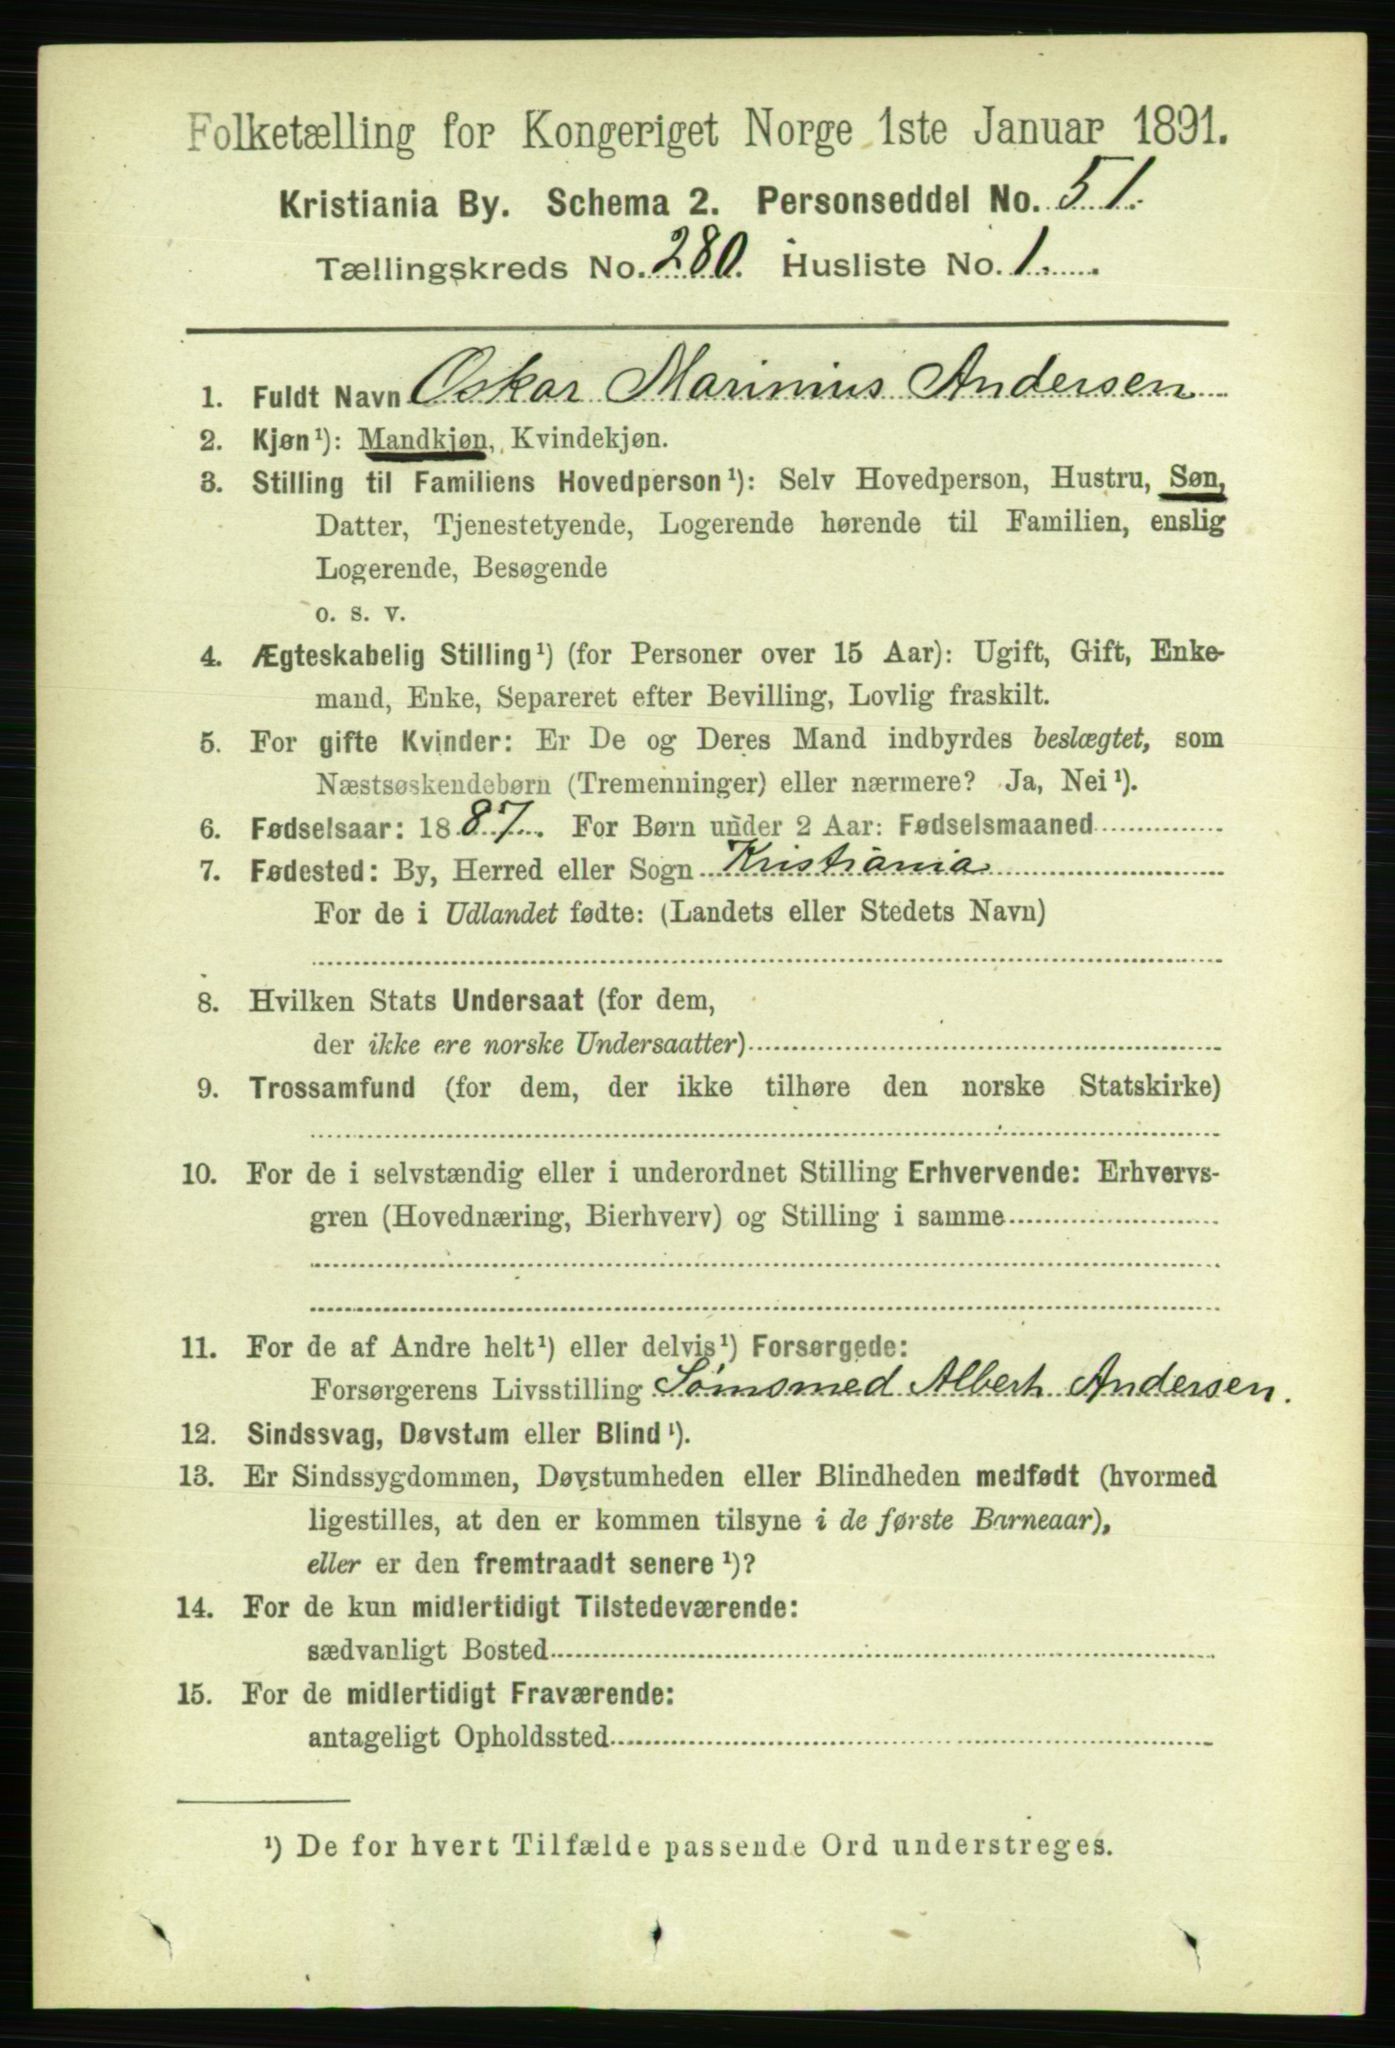 Folketælling for Kongeriget Norge 1ste Januar 1891.
Kristiania By. Schema 2. Personseddel No. 51.
Tællingskreds No. 280. Husliste No. 1.
1. Fuldt Navn Oskar Marinius Andersen
2. Kjøn¹): Mandkjøn, Kvindekjøn.
3. Stilling til Familiens Hovedperson¹): Selv Hovedperson, Hustru, Søn,
Datter, Tjenestetyende, Logerende hørende til Familien, enslig
Logerende, Besøgende
o. s. v.
4. Ægteskabelig Stilling¹) (for Personer over 15 Aar): Ugift, Gift, Enke-
mand, Enke, Separeret efter Bevilling, Lovlig fraskilt.
5. For gifte Kvinder: Er De og Deres Mand indbyrdes beslægtet, som
Næstsøskendebørn (Tremenninger) eller nærmere? Ja, Nei¹).
6. Fødselsaar: 1887. For Børn under 2 Aar: Fødselsmaaned
7. Fødested: By, Herred eller Sogn Kristiania
For de i Udlandet fødte: (Landets eller Stedets Navn)
8. Hvilken Stats Undersaat (for dem,
der ikke ere norske Undersaatter)
9. Trossamfund (for dem, der ikke tilhøre den norske Statskirke)
10. For de i selvstændig eller i underordnet Stilling Erhvervende: Erhvervs-
gren (Hovednæring, Bierhverv) og Stilling i samme
11. For de af Andre helt¹) eller delvis¹) Forsørgede:
Forsørgerens Livsstilling Sømsmed Albert Andersen.
12. Sindssvag, Døvstum eller Blind¹).
13. Er Sindssygdommen, Døvstumheden eller Blindheden medfødt (hvormed
ligestilles, at den er kommen tilsyne i de første Barneaar),
eller er den fremtraadt senere¹)?
14. For de kun midlertidigt Tilstedeværende:
sædvanligt Bosted
15. For de midlertidigt Fraværende:
antageligt Opholdssted
¹) De for hvert Tilfælde passende Ord understreges.